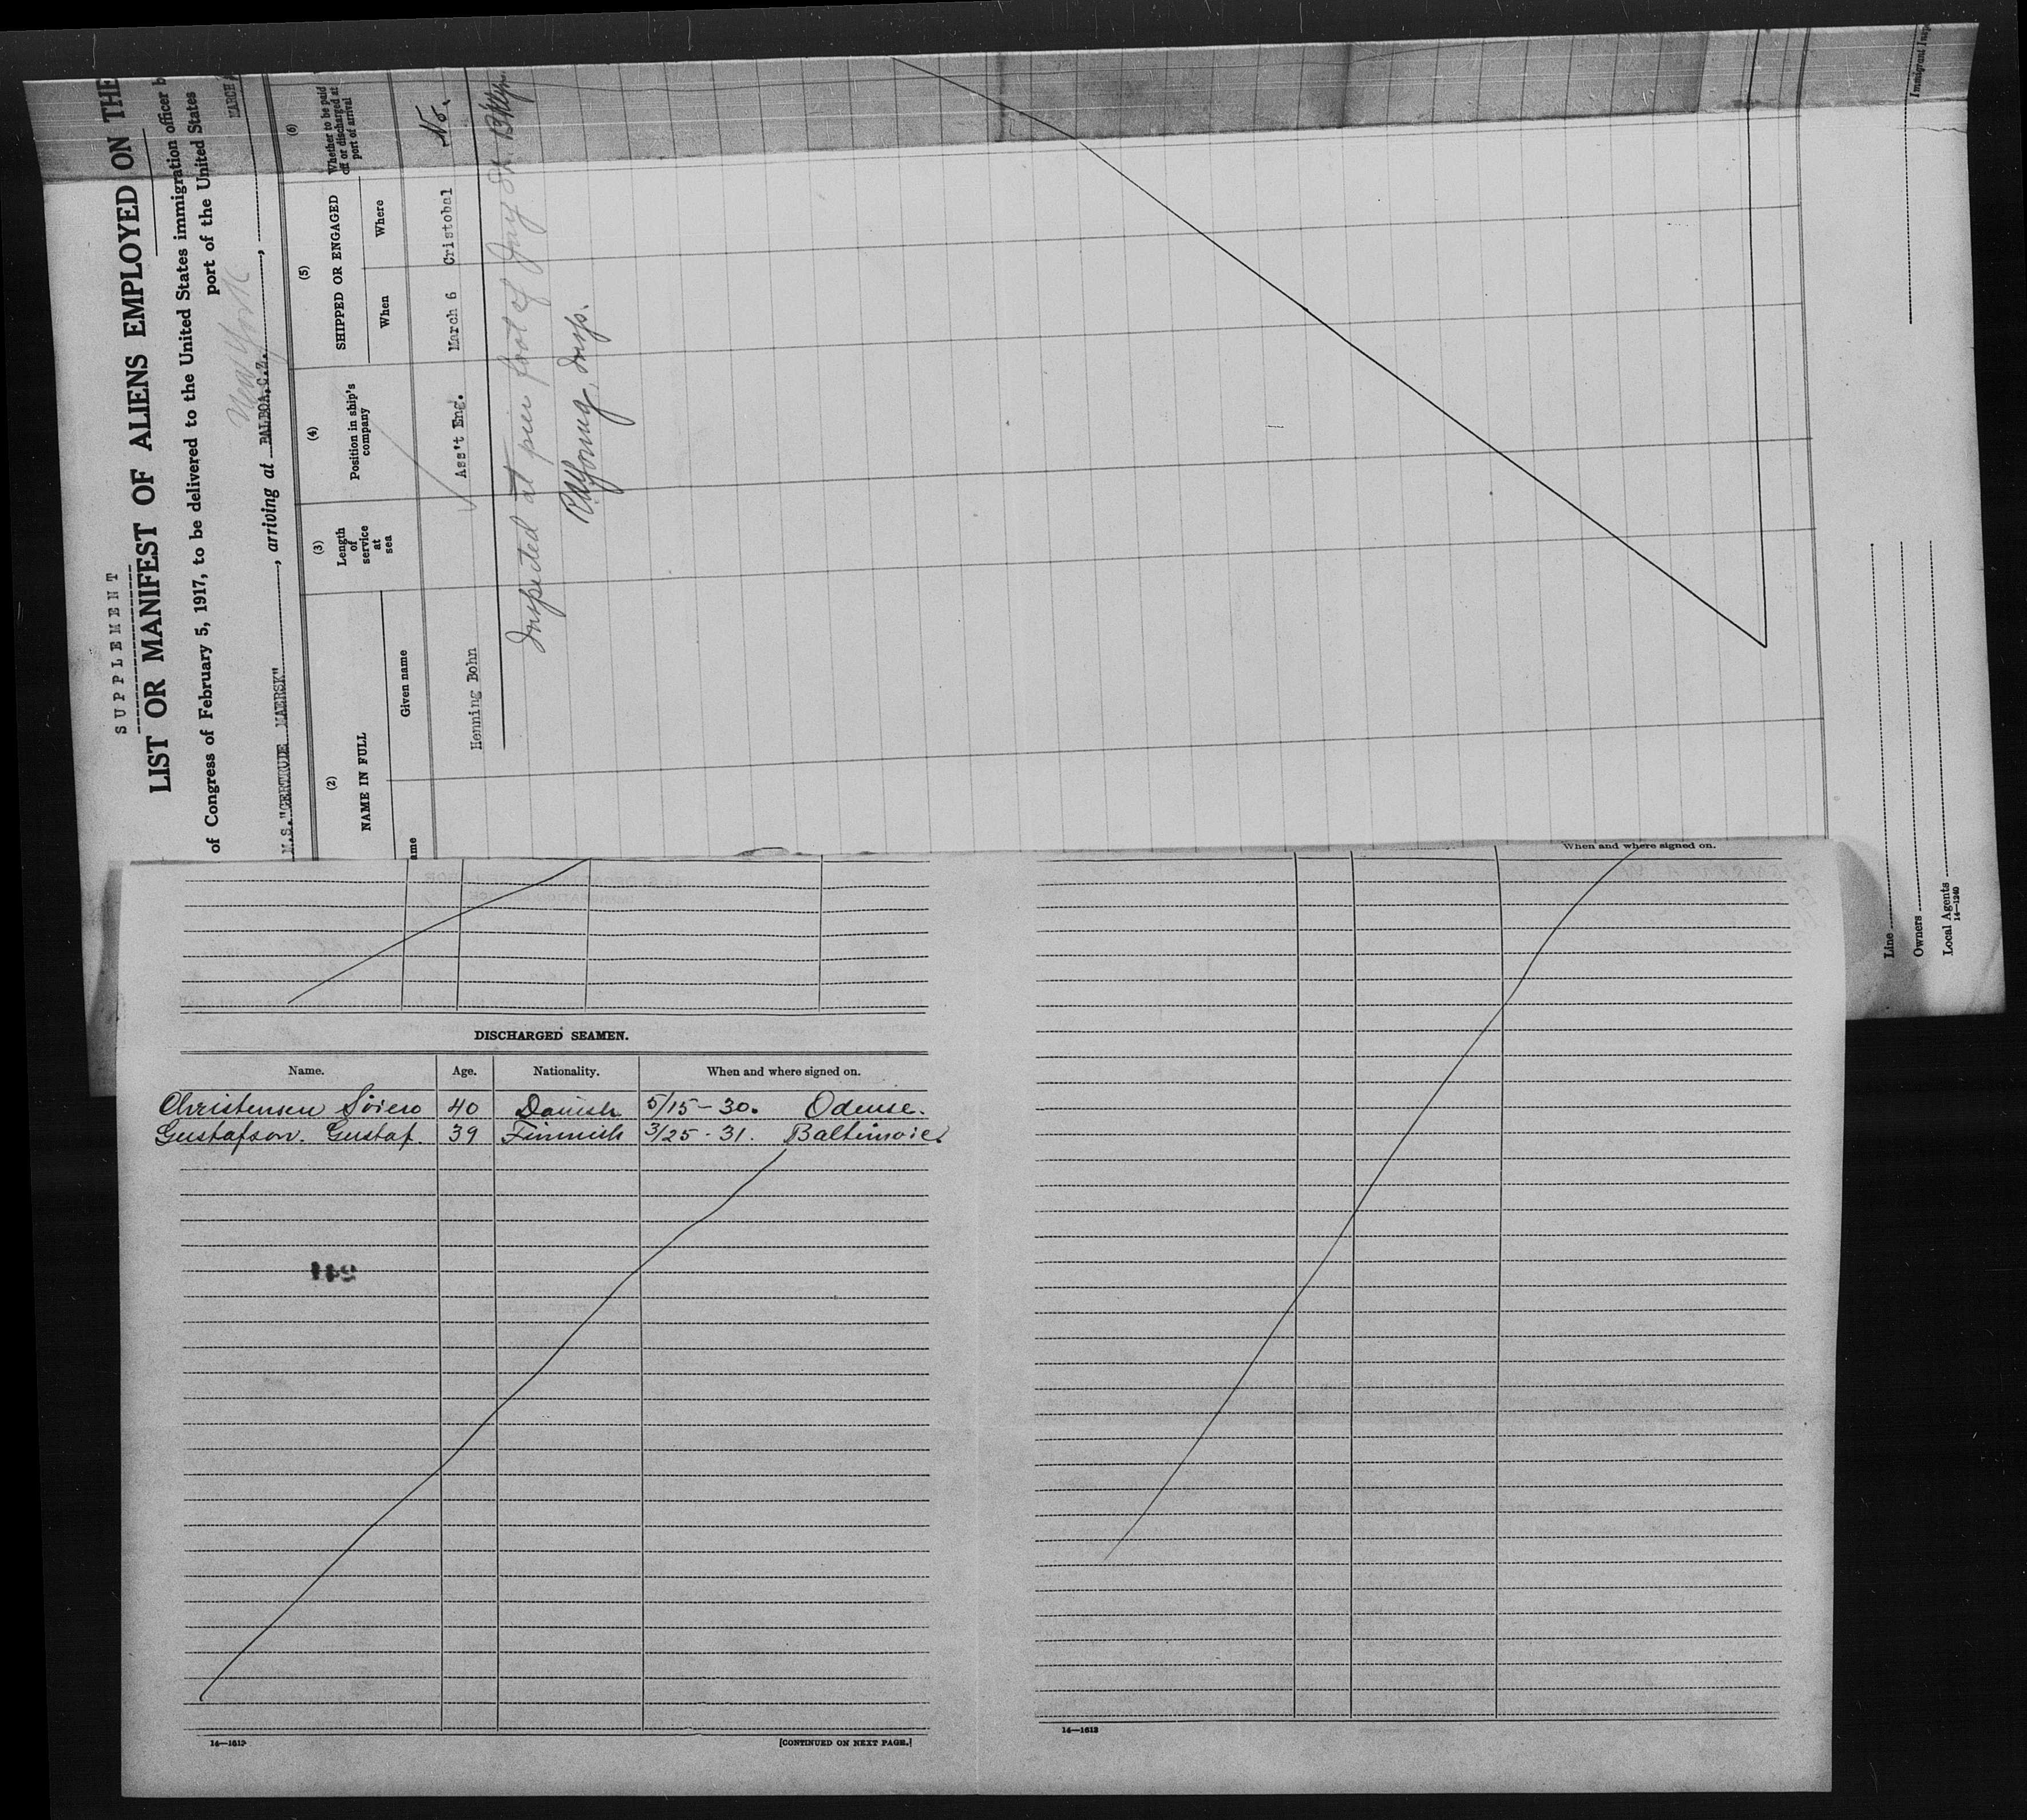 SUPPLEMENT
LIST OR MANIFEST OF ALIENS EMPLOYED ON THE
of Congress of February 5, 1917, to be delivered to the United States immigration officer b
port of the United States
New York
M.S. "GERTRUDE MAERSK", arriving at BALBOA, C.Z., MARCH
(2) (3) (4) (5) (6)
NAME IN FULL
ame Given name
Length of service at sea
Position in ship's company
SHIPPED OR ENGAGED
When Where
Whether to be paid off or discharged at port of arrival
Henning Bohn Ass't Eng. March 6 Cristobal No.
Inspected at pier foot of Jay St. Bklyn.
Young, Insp.
Immigrant Insp
Line
Owners
Local Agents
14—1240
DISCHARGED SEAMEN.
Name. Age. Nationality. When and where signed on.
Christensen Sören 40 Danish 5/15-30. Odense.
Gustafson. Gustaf. 39 Finnish 3/25-31. Baltimore.
14—1613 [CONTINUED ON NEXT PAGE.]
When and where signed on.
14—1613